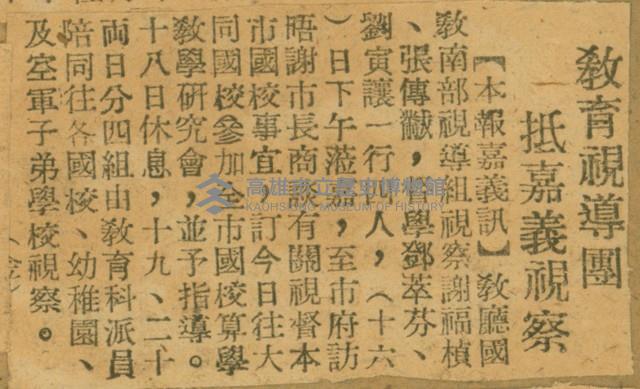 教育視導團
抵嘉義視察
【本報嘉義訊】教廳國
教南部視導組視察謝福楨
、張傳黻，督學鄧萃芬、
劉寅讓一行　人，（十六
）日下午蒞　嘉，至市府訪
晤謝市長商　有關視督本
市國校事宜　訂今日往大
同國校參加全市國校算學
教學研究會，並予指導。
十八日休息，十九、二十
兩日分四組由教育科派員
陪同往各國校、幼稚園、
及空軍子弟學校視察。
高雄市立歷史博物館
KAOHSIUNG MUSEUM OF HISTORY